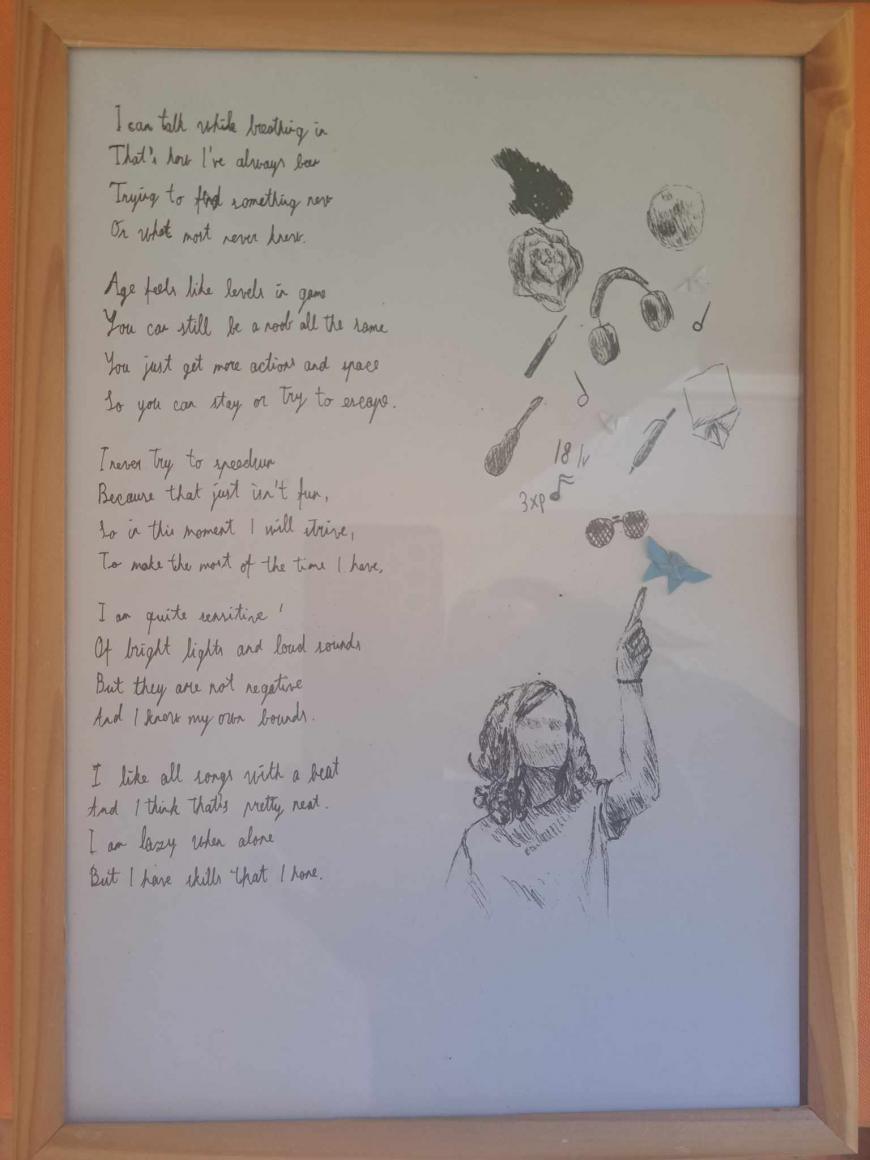 I can talk while breathing in
That's how I've always been
Trying to find something new
Or what most never knew.
Age feels like levels in game
You can still be a noob all the same
You just get more actions and space
So you can stay or Try to escape.
I never Try to speedrun
Because that just isn't fun,
So in this moment I will strive,
To make the most of the time I have,
I am quite sensitive
Of bright lights and loud sounds
But they are not negative
And I know my own bounds.
I like all songs with a beat
And I think that's pretty neat.
I am lazy when alone
But I have skills that I hone.
18 lv
3xp